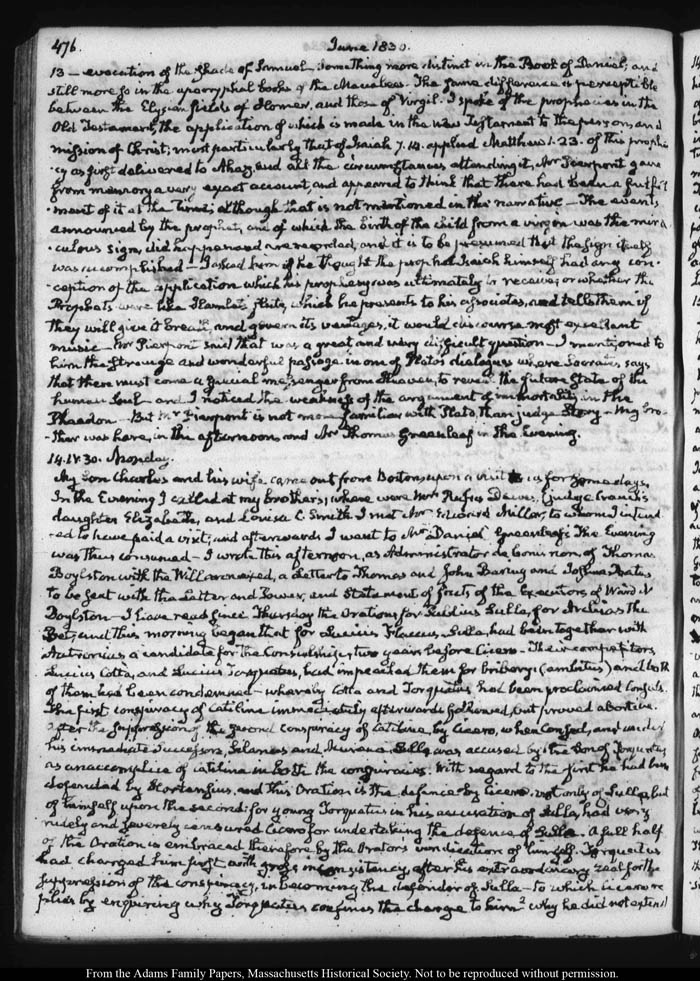 476.
June 1830.
13 — evocation of the Shade of Samuel. Something more distinct in the Book of Daniel, and
still more so in the apocryphal books of the Maccabees. The same difference is perceptible
between the Elysian fields of Homer, and those of Virgil. I spoke of the prophecies in the
Old Testament, the application of which is made in the new Testament to the person, and
mission of Christ; most particularly that of Isaiah 7.14. applied Matthew 1.23. of this prophe-
cy as first delivered to Ahaz, and all the circumstances attending it, Mr Pierpont gave
from memory a very exact account, and appeared to think that there had been a fulfil-
ment of it at the time; although that is not mentioned in the narrative — The events
announced by the prophet, and of which the birth of the child from a virgin was the mira-
culous sign, did happen and are recorded, and it is to be presumed that the sign itself
was accomplished — I asked him if he thought the prophet Isaiah himself had any con-
ception of the application which his prophecy was ultimately to receive; or whether the
Prophets were like Hamlet's flute, which he presents to his associates, and tells them if
they will give it breath, and govern its ventages, it would discourse most excellent
music — Mr Pierpont said that was a great and very difficult question — I mentioned to
him the strange and wonderful passage in one of Plato's dialogues where Socrates, says
that there must come a special messenger from Heaven, to reveal the future State of the
human Soul — and I noticed the weakness of the argument of immortality, in the
Phaedon — But Mr Pierpont is not more familiar with Plato than judge Story — My bro-
ther was here, in the afternoon, and Mr Thomas Greenleaf in the Evening.
14. IV. 30. Monday.
My Son Charles and his wife came out from Boston, upon a visit to us for some days.
In the Evening I called at my brother's; where were Mrs Rufus Dawes, (judge Cranch's
daughter Elizabeth, and Louisa C. Smith. I met Mr Edward Miller, to whom I intend-
ed to have paid a visit; and afterwards I went to Mr Daniel Greenleaf's. The Evening
was thus consumed — I wrote this afternoon, as Administrator de bonis non, of Thomas
Boylston with the Will annexed, a Letter to Thomas and John Baring and Joshua Bates
to be sent with the Letter and Power, and Statement of facts of the Executors of Ward N
Boylston — I have read since Thursday the Orations, for Publius Sulla, for Archias the
Poet, and this morning began that for Lucius Flaccus. Sulla, had been together with
Autronius a candidate for the Consulship, two years before Cicero — Their competitors
Lucius Cotta, and Lucius Torquatus, had impeached them for bribery (ambitus) and both
of them had been condemned — whereby Cotta and Torquatus had been proclaimed Consuls.
The first conspiracy of Catiline immediately afterwards followed, but proved abortive.
After the Suppression of the second conspiracy of Catiline, by Cicero, when Consul, and under
his immediate Successors, Silanus and Murena. Sulla was accused by the Son of Torquatus
as an accomplice of Catiline in both the conspiracies. With regard to the first he had been
defended by Hortensius, and this Oration is the defence by Cicero, not only of Sulla, but
of himself upon the second: for young Torquatus in his accusation of Sulla, had very
rudely and severely censured Cicero for undertaking the defence of Sulla. A full half
of the Oration is embraced therefore by the Orator's vindication of himself. Torquatus
had charged him first with gross inconsistency, after his extraordinary zeal for the
Suppression of the conspiracy, in becoming the defender of Sulla — to which Cicero re-
plies by enquiring why Torquatus confines the charge to him? why he did not extend
From the Adams Family Papers, Massachusetts Historical Society. Not to be reproduced without permission.